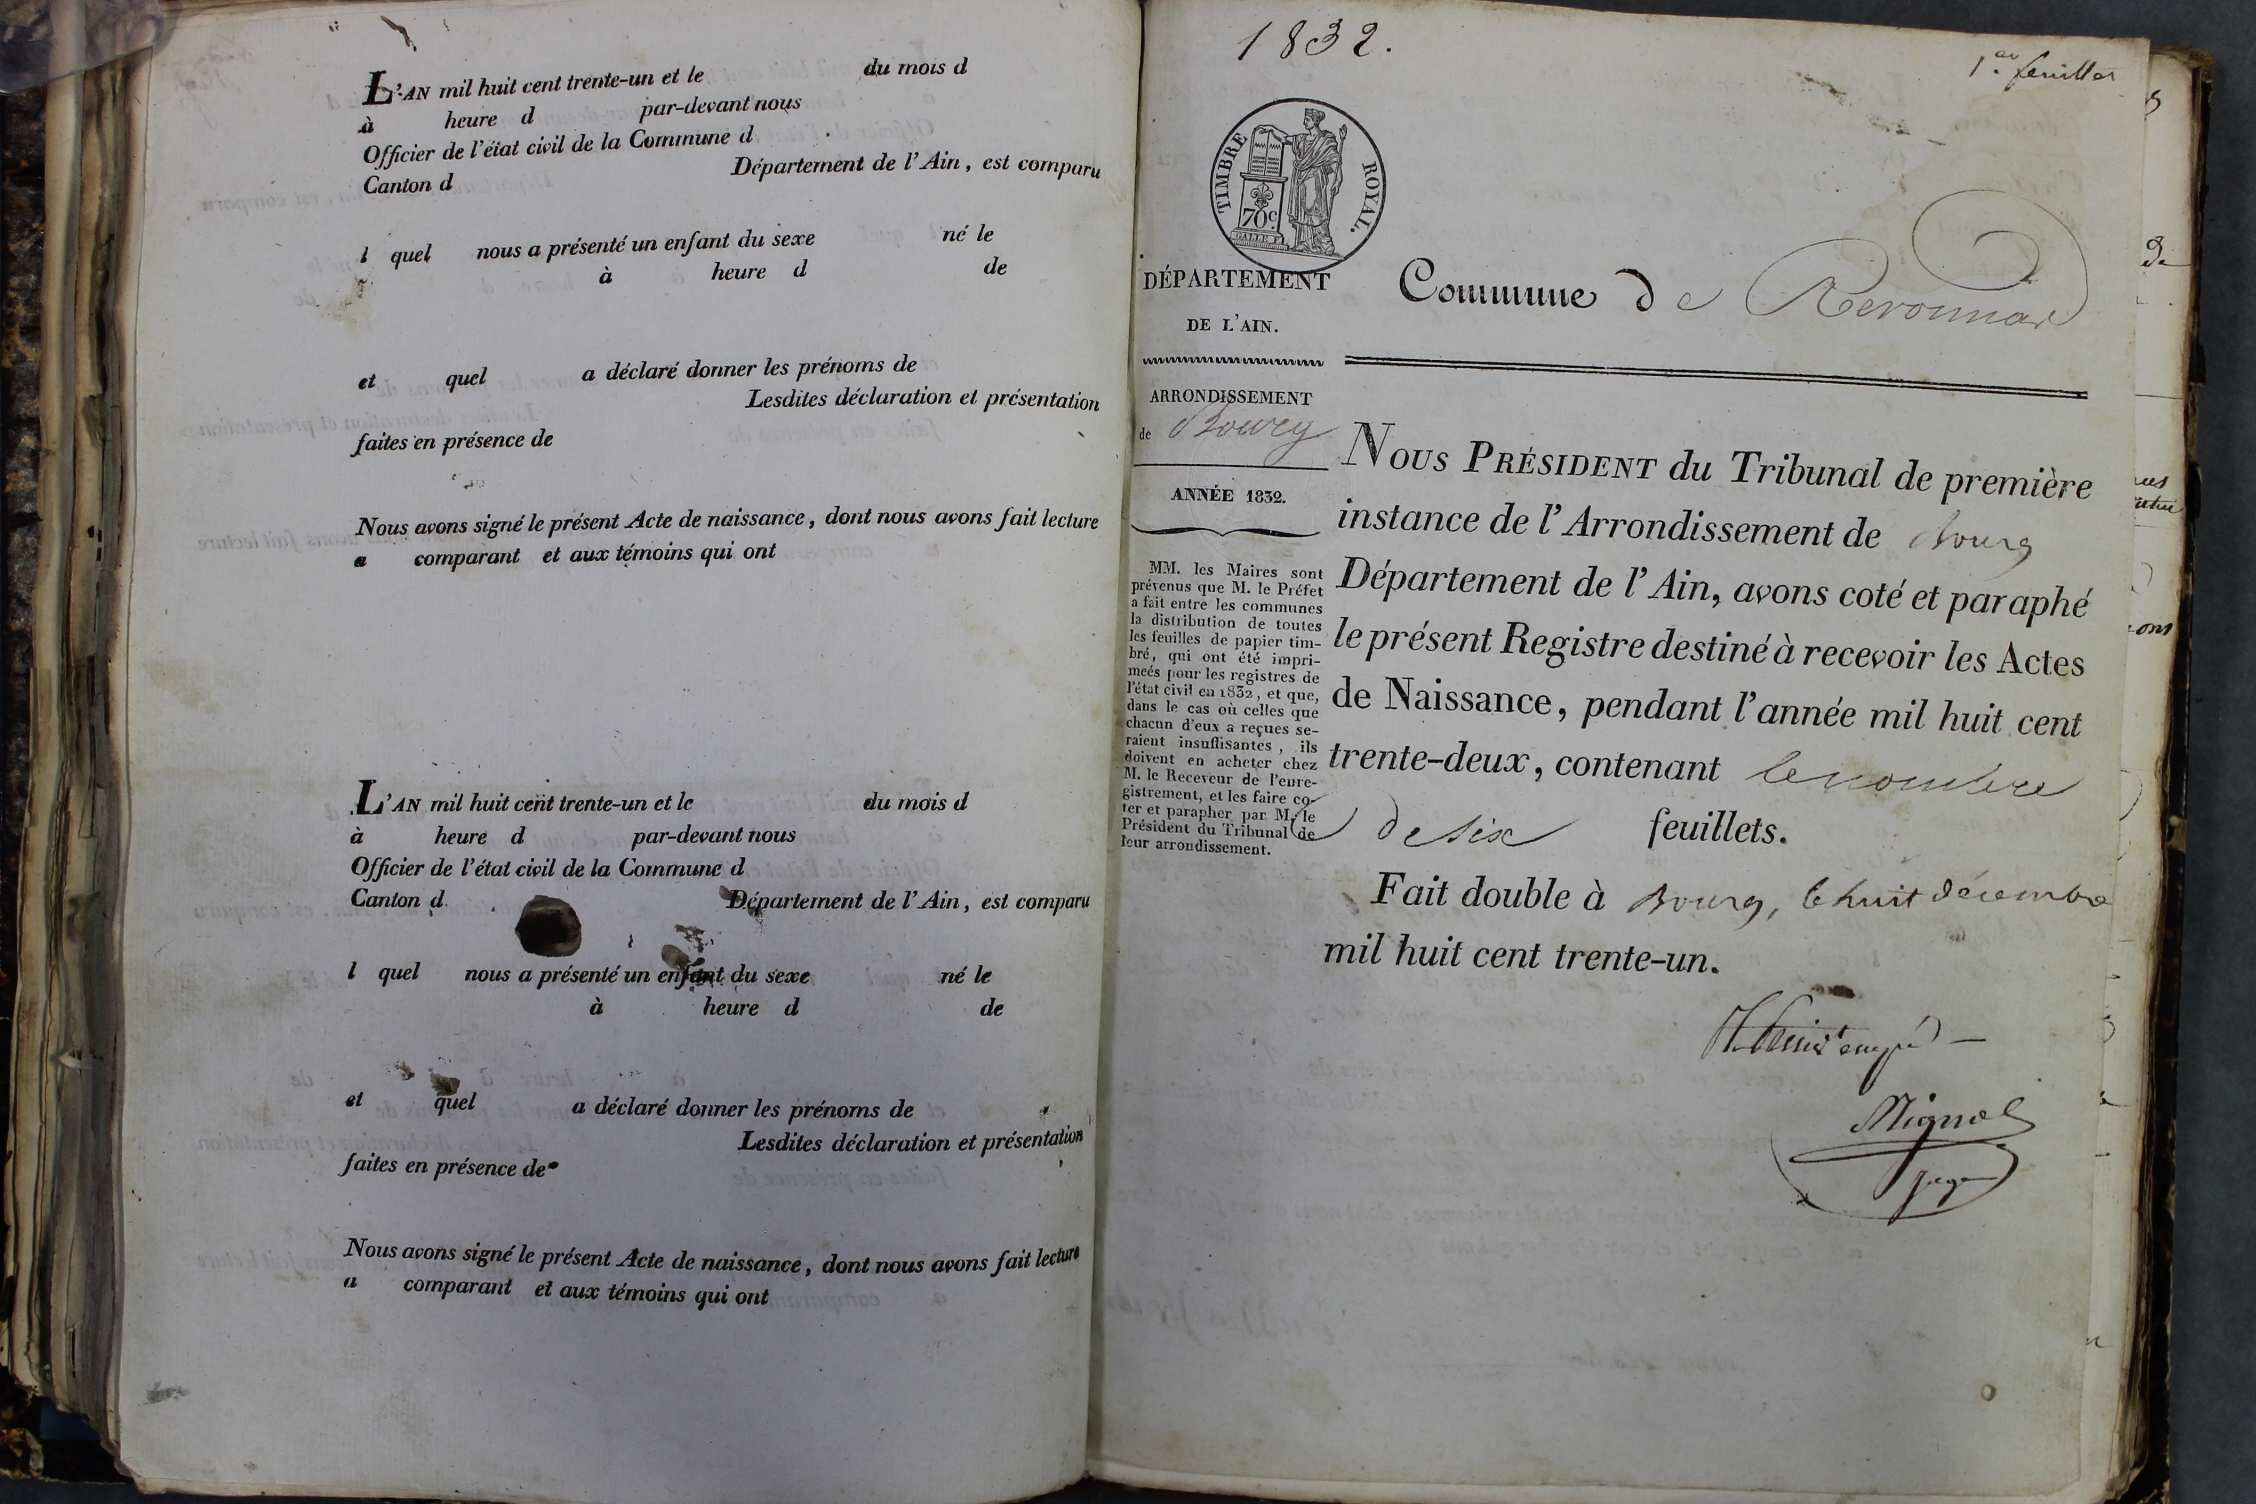 L'AN mil huit cent trente-un et le du mois d
à heure d par-devant nous
Officier de l'état civil de la Commune d
Canton d Département de l'Ain, est comparu
l quel nous a présenté un enfant du sexe né le
à heure d de
et quel a déclaré donner les prénoms de
Lesdites déclaration et présentation
faites en présence de
Nous avons signé le présent Acte de naissance, dont nous avons fait lecture
a comparant et aux témoins qui ont
L'AN mil huit cent trente-un et le du mois d
à heure d par-devant nous
Officier de l'état civil de la Commune d
Canton d Département de l'Ain, est comparu
l quel nous a présenté un enfant du sexe né le
à heure d de
et quel a déclaré donner les prénoms de
Lesdites déclaration et présentation
faites en présence de
Nous avons signé le présent Acte de naissance, dont nous avons fait lecture
a comparant et aux témoins qui ont
1832.
1.er feuillet
TIMBRE ROYAL.
70c
DÉPARTEMENT
DE L'AIN.
Commune de Revonnas
ARRONDISSEMENT
de Bourg
ANNÉE 1832.
MM. les Maires sont
prévenus que M. le Préfet
a fait entre les communes
la distribution de toutes
les feuilles de papier tim-
bré, qui ont été impri-
meés pour les registres de
l'état civil en 1832, et que,
dans le cas où celles que
chacun d'eux a reçues se-
raient insuffisantes, ils
doivent en acheter chez
M. le Receveur de l'enre-
gistrement, et les faire co-
ter et parapher par M. le
Président du Tribunal de
leur arrondissement.
NOUS PRÉSIDENT du Tribunal de première
instance de l'Arrondissement de Bourg
Département de l'Ain, avons coté et paraphé
le présent Registre destiné à recevoir les Actes
de Naissance, pendant l'année mil huit cent
trente-deux, contenant le nombre
de six feuillets.
Fait double à Bourg, le huit décembre
mil huit cent trente-un.
Mignot
juge